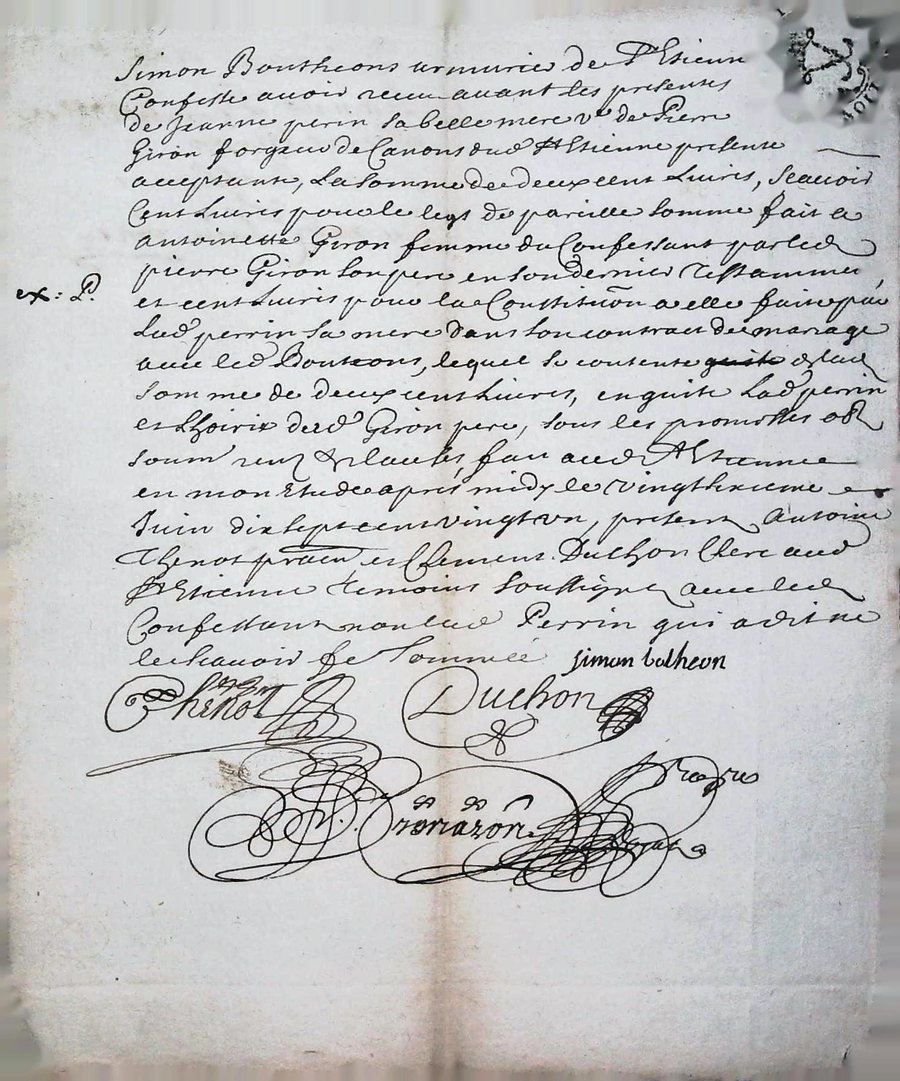 Simon Boutheons armurier de St Etienne
Confesse avoir receu avant les presentes
de Jeanne perin sa belle mere ve de Pierre
Giron forgeur de Canons dud St Etienne presente
acceptante, La somme de deux cent Livres, Scavoir
Cent Livres pour le legt de pareille somme fait a
antoinette Giron femme du Confessant par led
pierre Giron son pere en son dernier Testamment
ex: P.
et cent Livres pour la Constitu͠on a elle faite par
Lad perrin sa mere dans son contract de mariage
avec led Boutheons, lequel se contente quite de lad
somme de deux cent Livres, en quite Lad perrin
et Lhoirie dud Giron pere, sous les promesses obl
soum renz & clauses, fait aud St Etienne
en mon Etude apres midy le vingt sixieme
Juin dix sept cent vingt un, presens Antoine
Thenot et Clement Duchon Clerc aud
St Etienne temoins soussignes avec led
Confessant non lad Perrin qui a dit ne
le scavoir de ce sommée simon botheon
Thenot Duchon